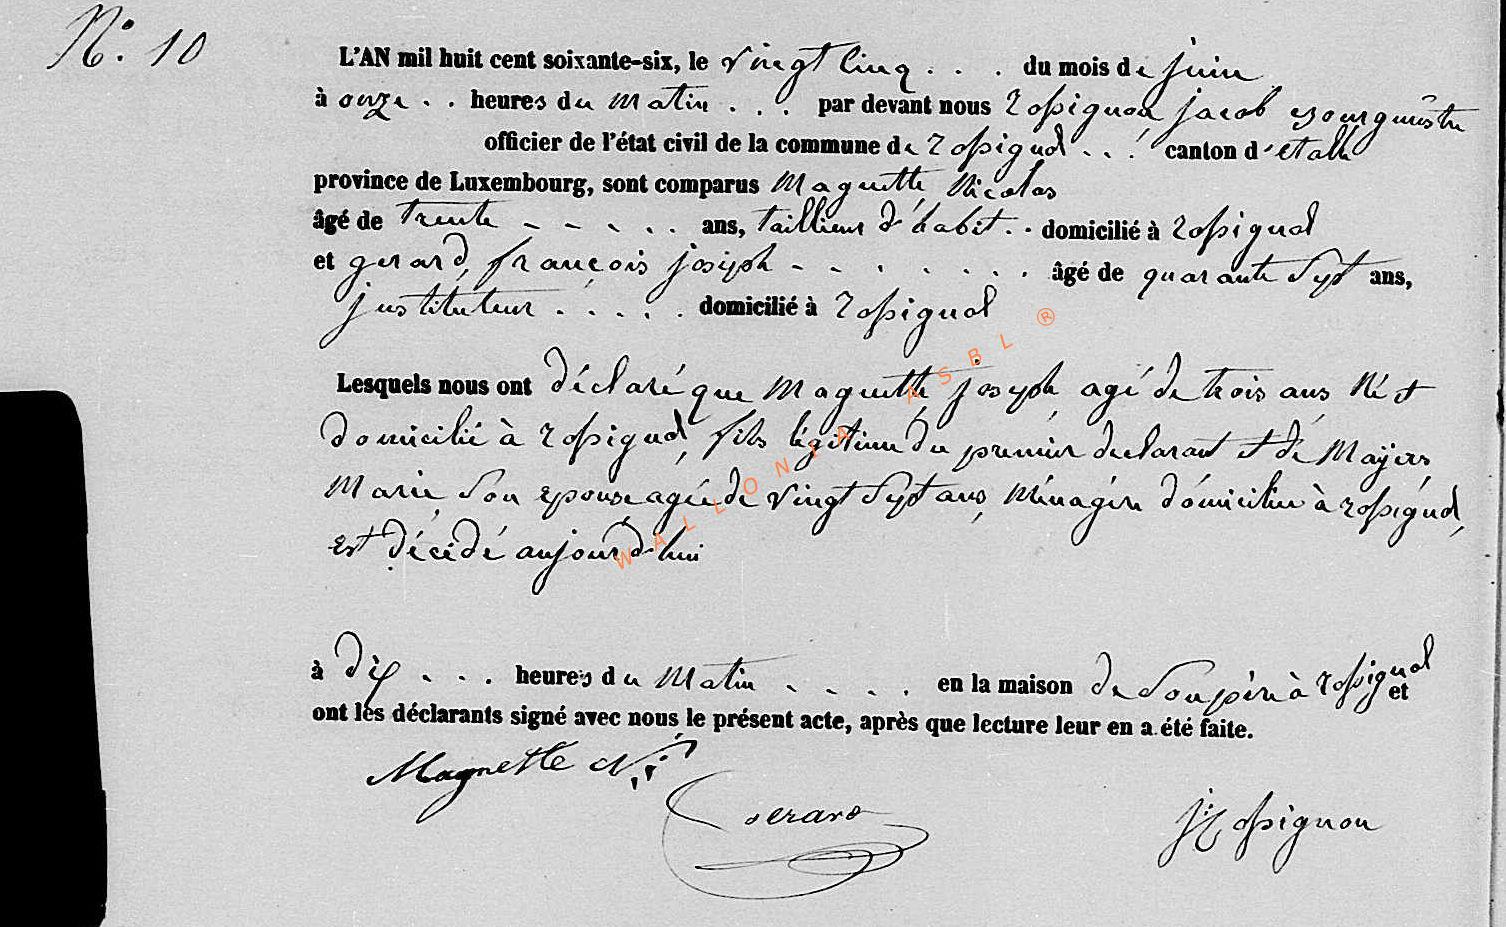 N°. 10
L'AN mil huit cent soixante-six, le vingt cinq . . . du mois de juin
à onze . . heures du matin . . . par devant nous Rossignon, jacob Bourgmestre
officier de l'état civil de la commune de Rossignol . . . canton d'étalle
province de Luxembourg, sont comparus Magnette, Nicolas
âgé de trente - - - . . ans, taillieur d'habit . . domicilié à Rossignol
et gerard, françois joseph - - . . . . . . âgé de quarante sept ans,
justituteur . . . . . domicilié à Rossignol
Lesquels nous ont déclaré que Magnette, joseph agé de trois ans Né et
domicilié à Rossignol, fils légitime du premier declarant et dé Majers
Marie Son epouse agée de vingt sept ans, Ménagère domiciliée à Rossignol,
est décédé aujourd'hui
à dix . . . heures du Matin . . . . en la maison de Son père à Rossignol et
ont les déclarants signé avec nous le présent acte, après que lecture leur en a été faite.
Magnette Ni
Gerard
J Rossignon
WALLONIA ASBL ®